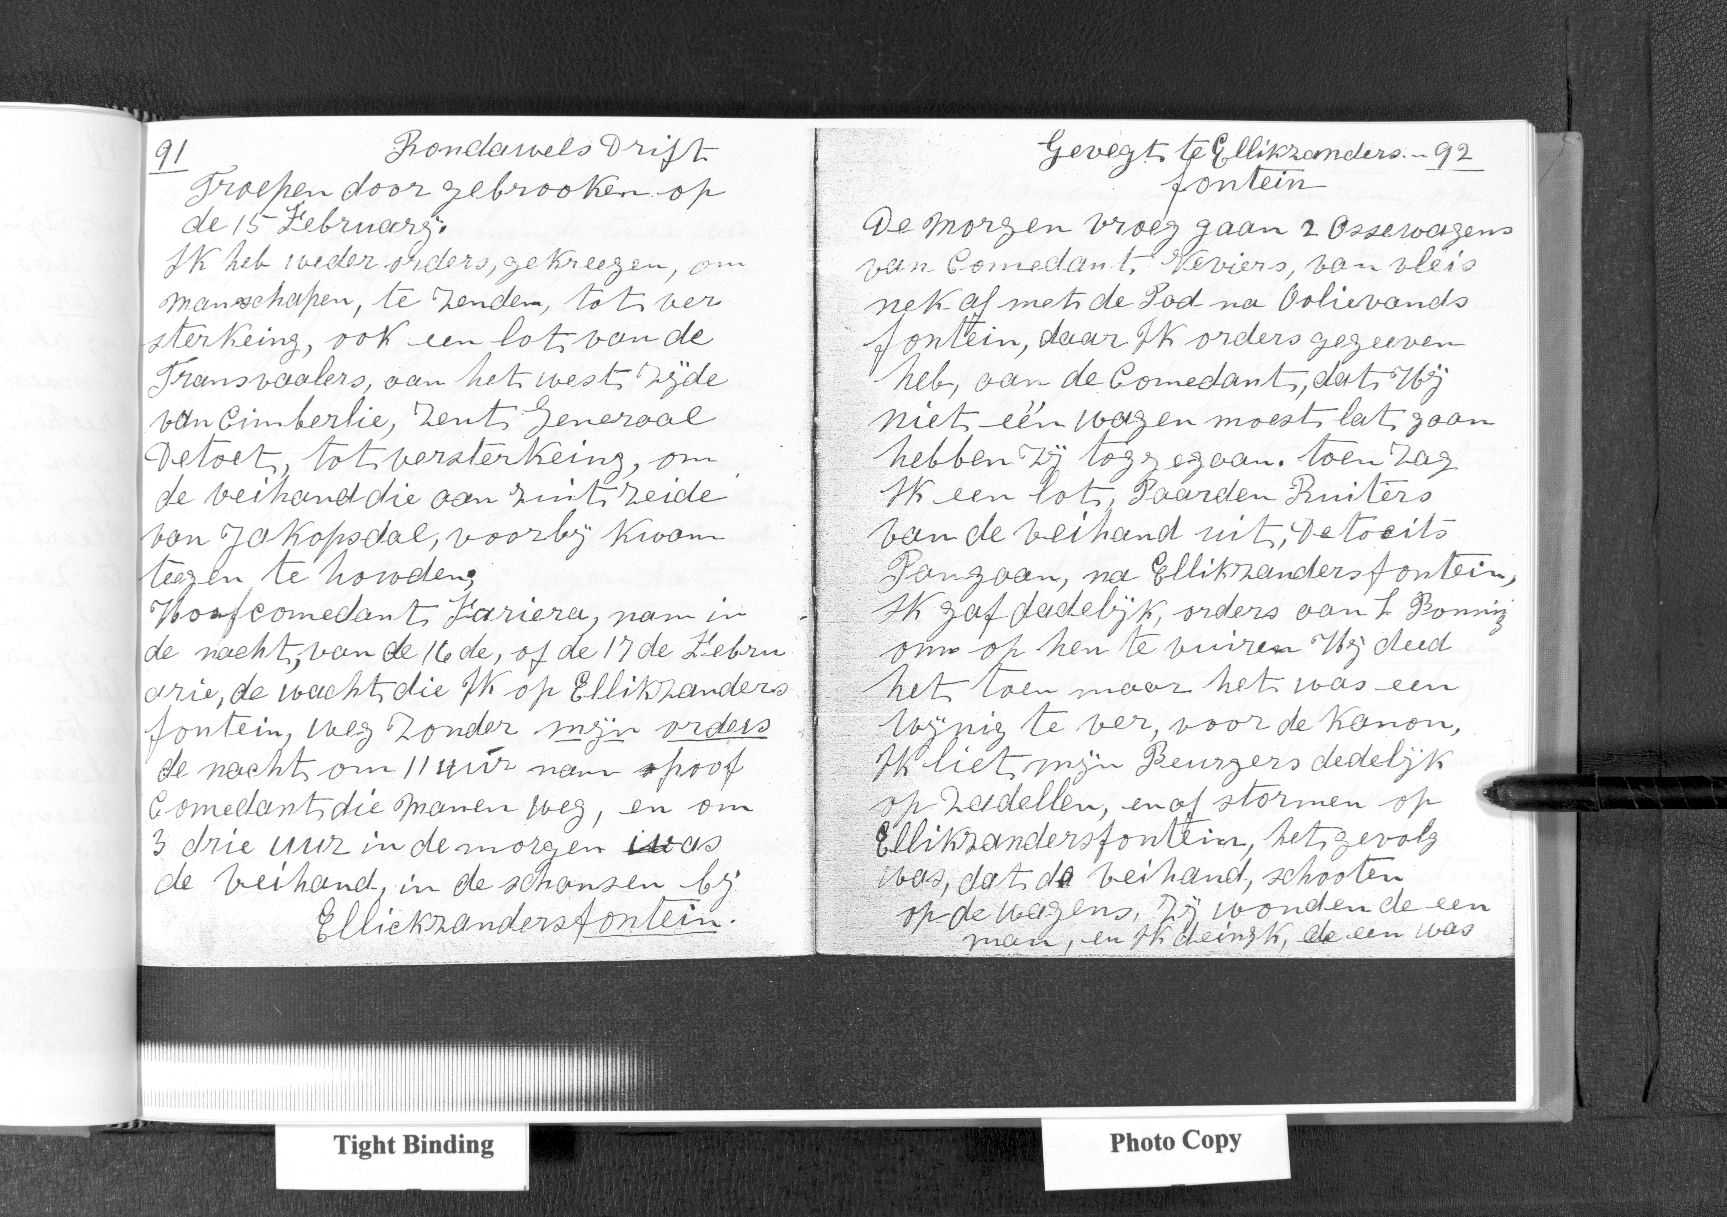 91 Rondawels Drift
Troepen door gebrooken op
de 15 February.
Ik heb weder orders, gekreegen, om
manschapen, te Zenden, tot ver
sterkeing, ook een lot van de
Transvaalers, aan het west Zijde
van Cimberlie, Zent Generaal
Detoet, tot versterkeing, om
de veihand die aan zuit zeide
van Jakopsdal, voorby kwam
teegen te howden;
Hoofcomedant Fariera, nam in
de nacht, van de 16 de, of de 17 de Febru
arie, de wacht die Ik op Ellikzanders
fontein, weg Zonder mijn orders
de nacht om 11 uur nam hoof
Comedant die manen weg, en om
3 drie uur in de morgen was
de veihand, in de schansen bij
Ellickzandersfontein.
Gevegt te Ellikzanders.. 92
fontein
De morgen vroeg gaan 2 Ossewagens
van Comedant Neviers, van vleis
nek af met de Pad na Oolievands
fontein, daar Ik orders gegeeven
heb, aan de Comedant, dat Hij
niet één wagen moest lat gaan
hebben Zij tog gegaan. toen Zag
Ik een lot, Paarden Ruiters
van de veihand uit, Detoeits
Pangaan, na Ellikzandersfontein,
Ik gaf dadelijk, orders aan L Bonnig
om op hen te vuiren Hij deed
het toen maar het was een
wijnig te ver, voor de Kanon,
Ik liet mijn Beurgers dedelijk
op Zadellen, en af stormen op
Ellikzandersfontein, het gevolg
was, dat de veihand, schooten
op de wagens, Zij wonden de een
man, en Ik deingk, de een was
Tight Binding
Photo Copy